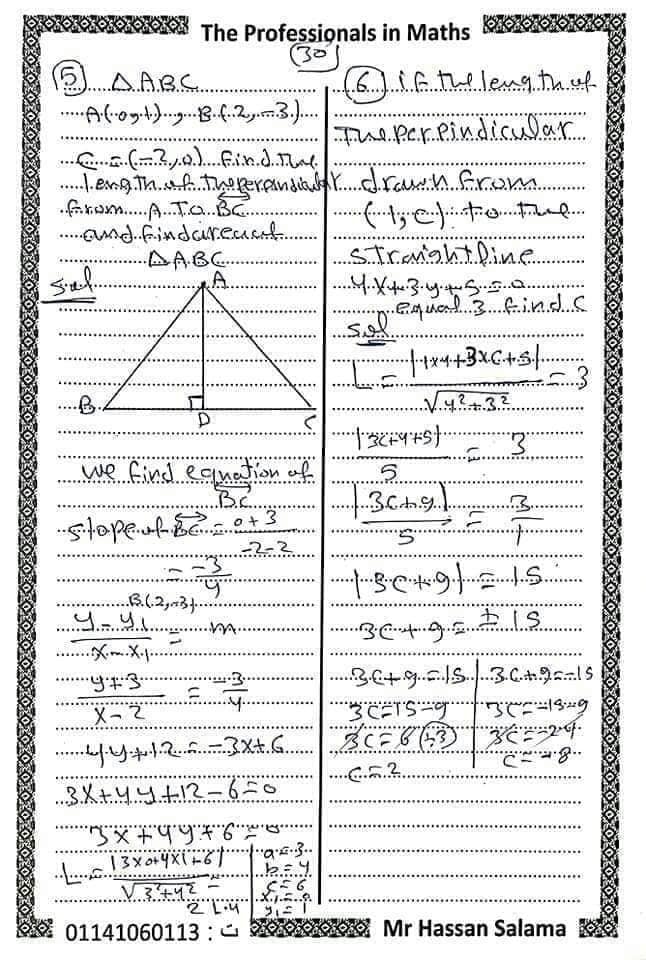 The Professionals in Maths
(30)
(5) △ABC
A(0,1), B(2,-3)
C=(-2,0) find the
length of the perpendicular
from A To BC
and find area of
△ABC
Sol
A
B
D
C
we find equation of
BC
slope of BC = 0+3/-2-2
= -3/4
B(2,-3)
y-y1/x-x1 = m
y+3/x-2 = -3/4
4y+12=-3x+6
3x+4y+12-6=0
3x+4y+6=0
L = |3x0+4x1+6|/√3²+4² =
2 L.4
a=3
b=4
c=6
x1=0
y1=1
(6) if the length of
The perpindicular
drawn from
(1,c) to the
straight line
4x+3y+5=0
equal 3 find C
Sol
L = |1x4+3xC+5|/√4²+3² = 3
|3C+4+5|/5 = 3
|3C+9|/5 = 3/1
|3C+9| = 15
3C+9=±15
3C+9=15 | 3C+9=-15
3C=15-9 | 3C=-15-9
3C=6 (÷3) | 3C=-24
C=2 | C=-8
01141060113 : ت
Mr Hassan Salama